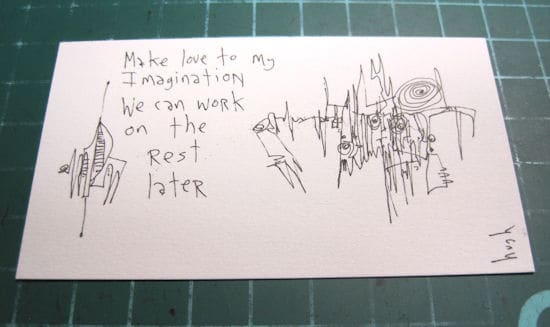 Make love to my
Imagination
We can work
on the
Rest
later